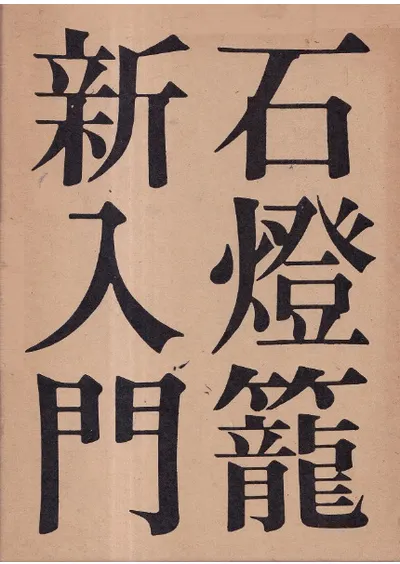 石燈籠
新入門